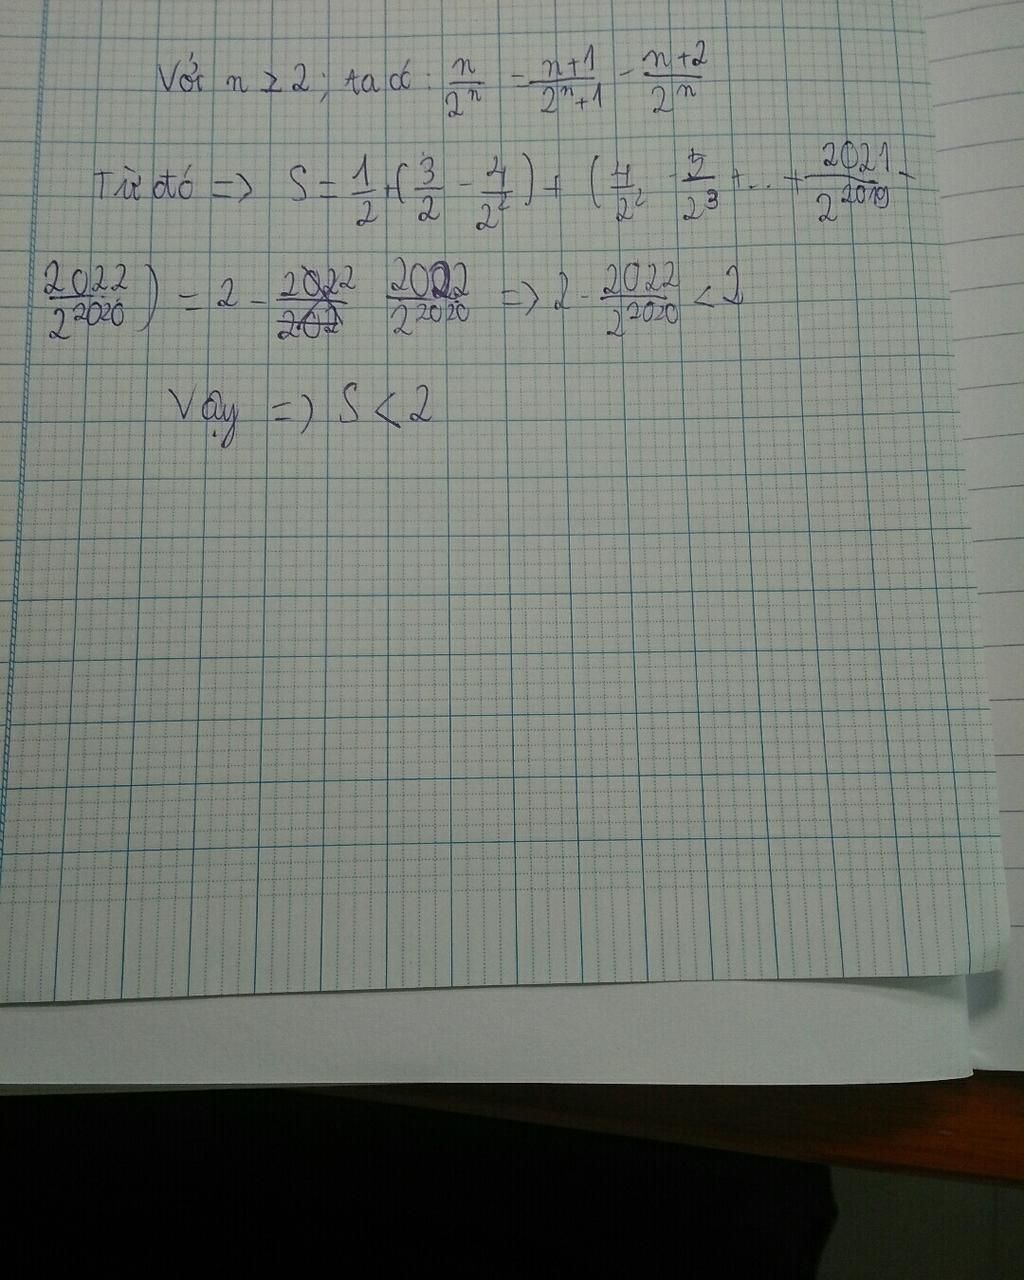 Với n ≥ 2; ta có: n/2^n = (n+1)/(2^n+1) - (n+2)/2^n
Từ đó => S = 1/2 + (3/2 - 4/2^2) + (4/2^2 - 5/2^3 + ... + 2021/2^2019 -
2022/2^2020) = 2 - 2022/2^2020 => 2 - 2022/2^2020 < 2
Vậy => S < 2